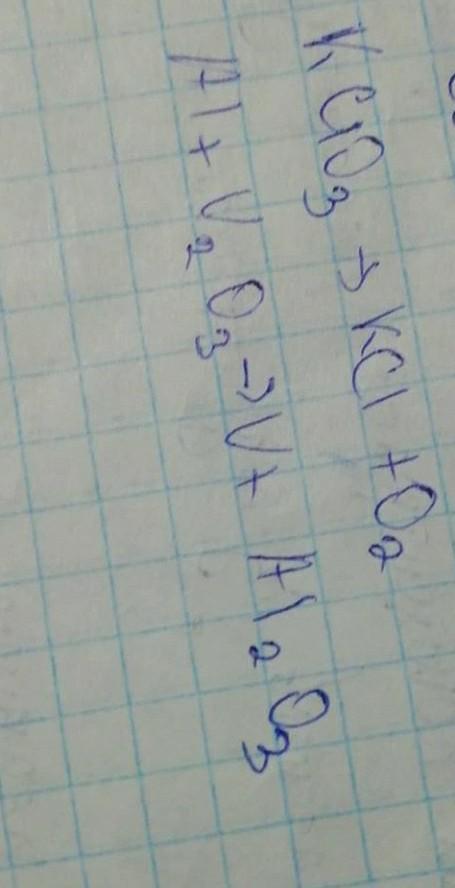 KClO₃ → KCl + O₂
Al + V₂O₃ → V + Al₂O₃